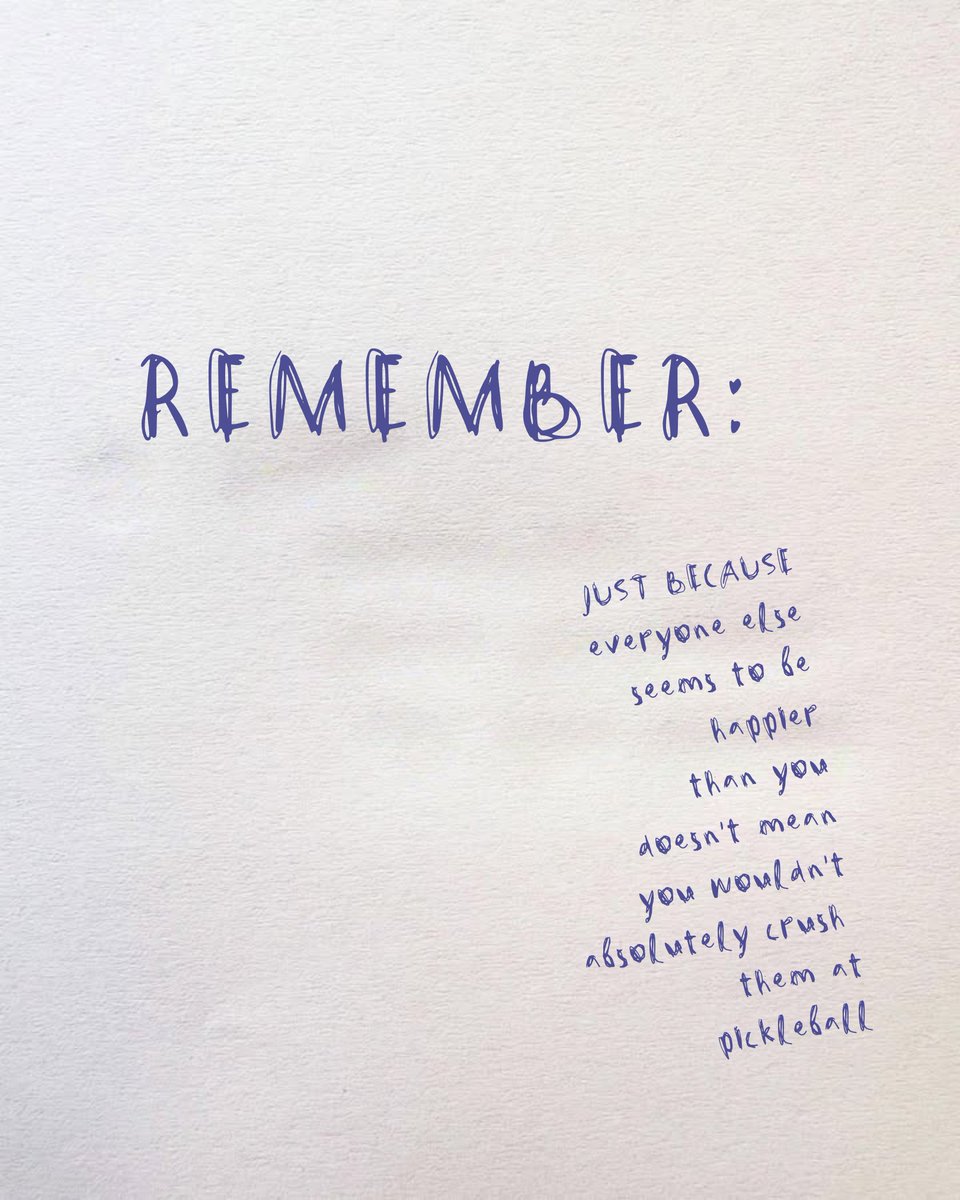 REMEMBER:
JUST BECAUSE
everyone else
seems to be
happier
than you
doesn't mean
you wouldn't
absolutely crush
them at
pickleball